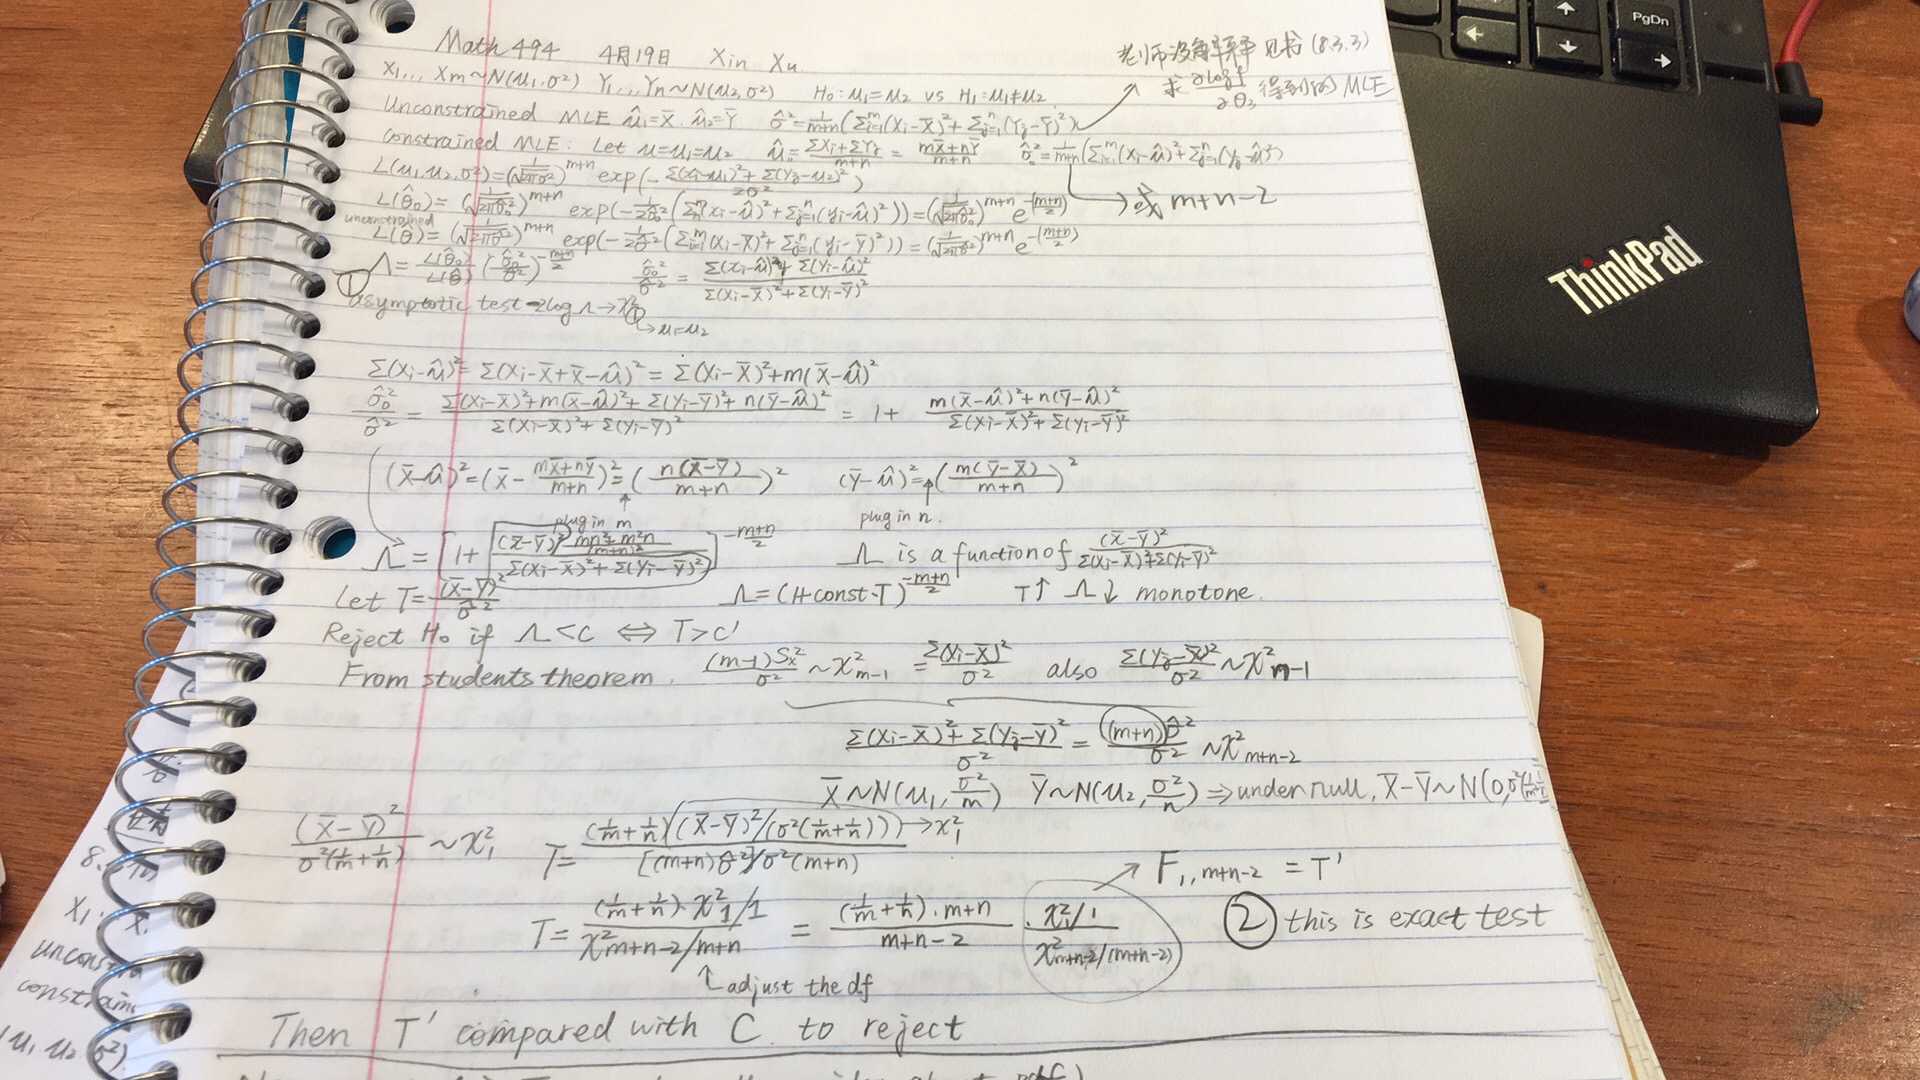 Math 494 4月19日 Xin Xu
老师没有详解 见书 (8.3.3)
求 ∂logf/∂θ₃ 得到的 MLE
X₁,.., Xm ~ N(μ₁, σ²) Y₁,.., Yn ~ N(μ₂, σ²) H₀: μ₁=μ₂ vs H₁: μ₁≠μ₂
Unconstrained MLE μ̂₁=X̄. μ̂₂=Ȳ σ̂²=1/(m+n) (Σᵢ₌₁ᵐ(Xi-X̄)²+Σⱼ₌₁ⁿ(Yj-Ȳ)²)
constrained MLE: Let μ=μ₁=μ₂ μ̂₀=(ΣXi+ΣYj)/(m+n) = (mX̄+nȲ)/(m+n) σ̂₀²=1/(m+n) (Σᵢ₌₁ᵐ(Xi-μ̂)²+Σⱼ₌₁ⁿ(Yj-μ̂)²)
L(μ₁,μ₂,σ²)=(1/√(2πσ²))^(m+n) exp(-(Σ(xi-μ₁)²+Σ(Yj-μ₂)²)/2σ²)
→ 或 m+n-2
L(θ̂₀)= (1/√(2πσ̂₀²))^(m+n) exp(-1/2σ̂₀² (Σ(xi-μ̂)²+Σⱼ₌₁ⁿ(yi-μ̂)²))=(1/√(2πσ̂₀²))^(m+n) e^-((m+n)/2)
unconstrained
L(θ̂)= (1/√(2πσ̂²))^(m+n) exp(-1/2σ̂² (Σᵢ₌₁ᵐ(xi-X̄)²+Σⱼ₌₁ⁿ(yi-Ȳ)²))=(1/√(2πσ̂²))^(m+n) e^-((m+n)/2)
Λ= L(θ̂₀)/L(θ̂) (σ̂₀²/σ̂²)^(-(m+n)/2) σ̂₀²/σ̂² = (Σ(xi-μ̂)²+Σ(Yi-μ̂)²)/(Σ(Xi-X̄)²+Σ(Yi-Ȳ)²)
① asymptotic test -2logΛ→χ²₁
→ μ₁=μ₂
Σ(Xi-μ̂)²= Σ(Xi-X̄+X̄-μ̂)² = Σ(Xi-X̄)²+m(X̄-μ̂)²
σ̂₀²/σ̂² = (Σ(Xi-X̄)²+m(X̄-μ̂)²+Σ(Yi-Ȳ)²+n(Ȳ-μ̂)²)/(Σ(Xi-X̄)²+Σ(Yi-Ȳ)²) = 1+ (m(X̄-μ̂)²+n(Ȳ-μ̂)²)/(Σ(Xi-X̄)²+Σ(Yi-Ȳ)²)
(X̄-μ̂)²=(X̄-(mX̄+nȲ)/(m+n))²=(n(X̄-Ȳ)/(m+n))² (Ȳ-μ̂)²=(m(Ȳ-X̄)/(m+n))²
plug in m plug in n.
Λ = [1+ ((X̄-Ȳ)² (mn²+m²n)/(m+n)²)/(Σ(Xi-X̄)²+Σ(Yi-Ȳ)²)]^(-(m+n)/2) Λ is a function of (X̄-Ȳ)²/(Σ(Xi-X̄)²+Σ(Yi-Ȳ)²)
Let T=(X̄-Ȳ)²/σ̂² Λ=(1+const·T)^(-(m+n)/2) T↑ Λ↓ monotone.
Reject H₀ if Λ<C ⇔ T>C'
From students theorem. (m-1)Sx²/σ² ~ χ²m-1 = Σ(Xi-X̄)²/σ² also Σ(Yj-Ȳ)²/σ² ~ χ²n-1
(Σ(Xi-X̄)²+Σ(Yj-Ȳ)²)/σ² = (m+n)σ̂²/σ² ~ χ²m+n-2
X̄~N(μ₁, σ²/m) Ȳ~N(μ₂, σ²/n) ⇒ under null, X̄-Ȳ~N(0, σ²(1/m+1/n
(X̄-Ȳ)²/(σ²(1/m+1/n)) ~ χ²₁ T= ((1/m+1/n)((X̄-Ȳ)²/(σ²(1/m+1/n))))/([(m+n)σ̂²]/σ²(m+n)) → χ²₁
→ F₁,m+n-2 = T'
T= ((1/m+1/n)·χ²₁/1)/(χ²m+n-2/m+n) = ((1/m+1/n)·m+n)/(m+n-2) · (χ²₁/1)/(χ²m+n-2/(m+n-2)) ② this is exact test
↑ adjust the df
Then T' compared with C to reject
8.
X₁, X.
unconstra
constrain
μ₁ μ₂ σ²).
ThinkPad
PgDn